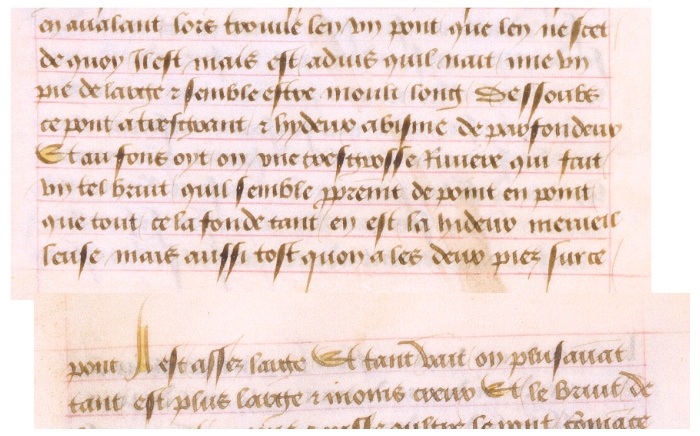 en aualant lors trouue len vn pont que len ne scet
de quoy Il est mais est aduis quil nait mie vn
pie de large & semble estre moult long Dessoubz
ce pont a tresgrant & hydeux abisme de parfondeur
Et au fons oyt on vne tresgrosse Riuiere qui fait
vn tel bruit quil semble de point en point
que tout cela fonde tant en est la hideur merueil
leuse mais aussi tost quon a les deux piez sur ce
pont Il est assez large Et tant vait on plus auat
tant est plus large & moins creux Et le bruit de
oultre le pont